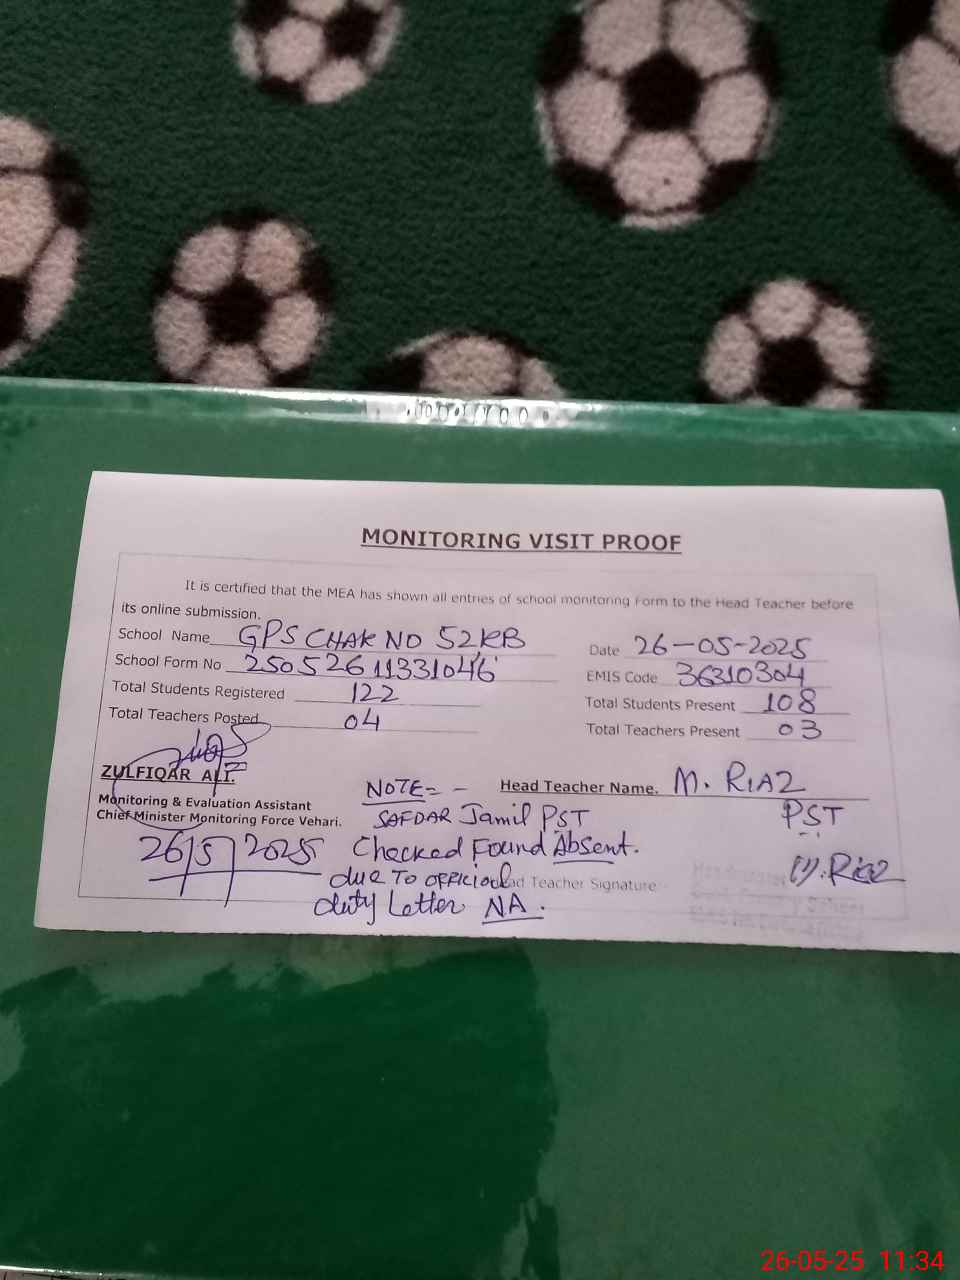 MONITORING VISIT PROOF
It is certified that the MEA has shown all entries of school monitoring Form to the Head Teacher before
its online submission.
School Name GPS CHAK NO 52KB
Date 26-05-2025
School Form No 25052611331046
EMIS Code 36310304
Total Students Registered 122
Total Students Present 108
Total Teachers Posted 04
Total Teachers Present 03
ZULFIQAR ALI.
Monitoring & Evaluation Assistant
Chief Minister Monitoring Force Vehari.
26/5/2025
Head Teacher Name. M. RIAZ
PST
NOTE= -
SAFDAR Jamil PST
Checked Found Absent.
due To OFFICIAL
duty Letter NA.
Head Teacher Signature
M. Riaz
26-05-25 11:34